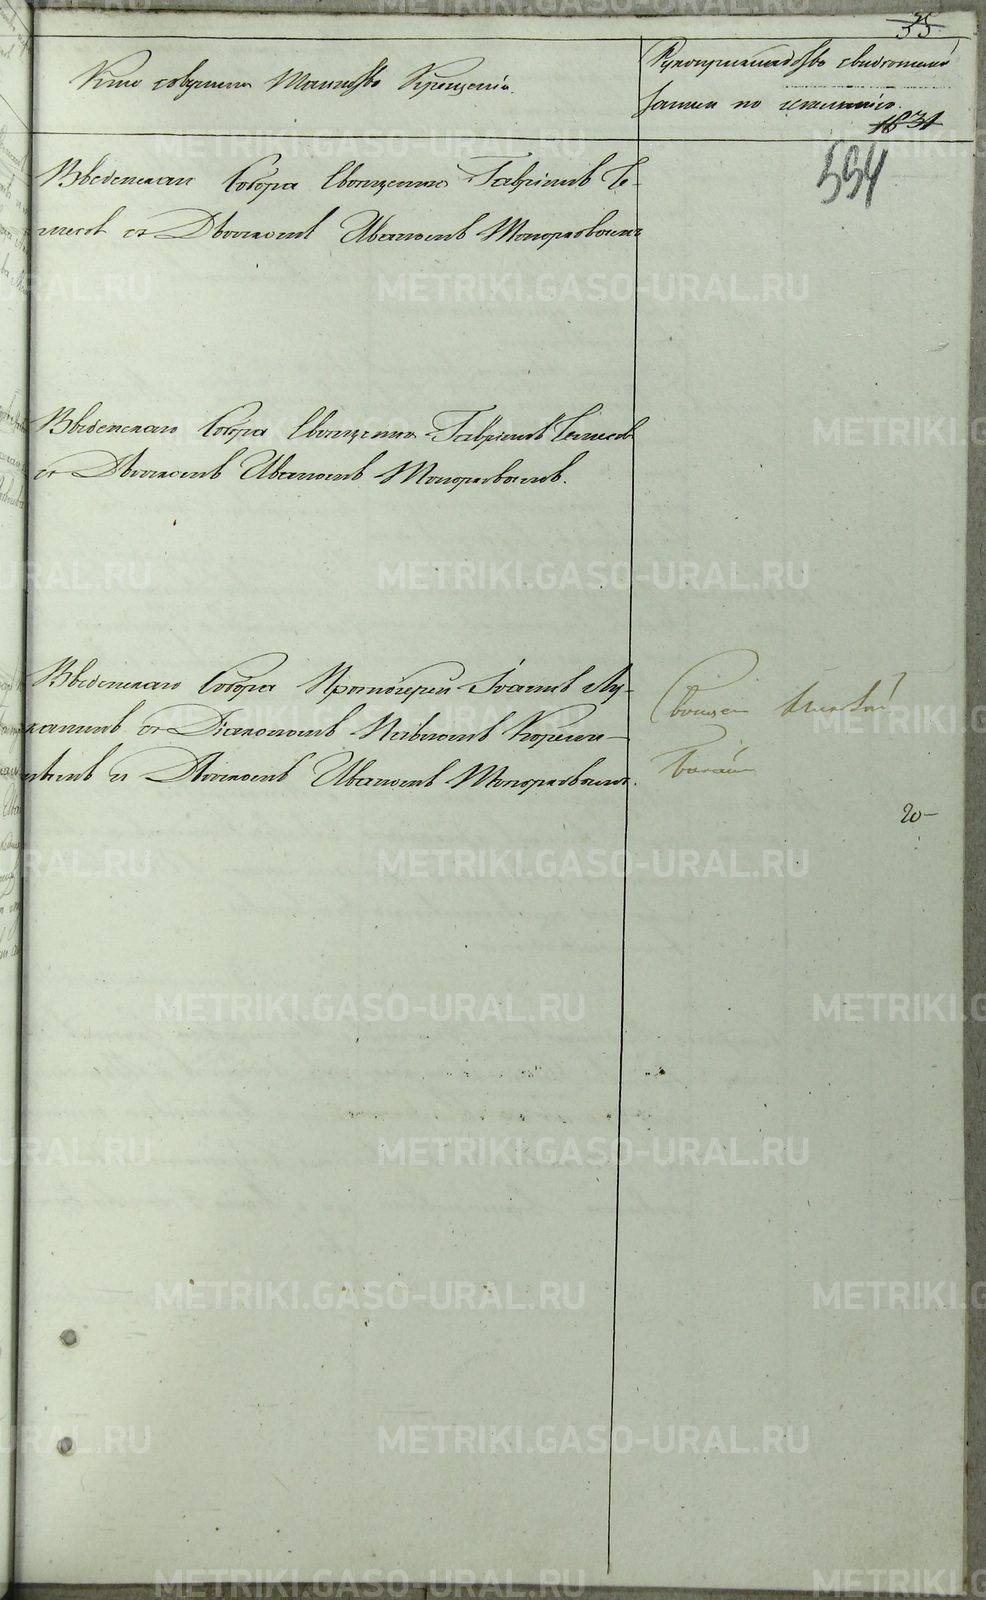 35
Кто совершалъ Таинство Крещенія.
Рукоприкладство свидѣтелей
записи по желанію.
1831
594
Введенскаго Собора Священникъ Гавріилъ Бе-
съ Дьячкомъ Иваномъ Топорковымъ
Введенскаго Собора Священникъ Гавріилъ
съ Дьячкомъ Иваномъ Топорковымъ.
Введенскаго Собора Протоіерей Іоаннъ Лу-
канинъ съ Діакономъ
и Дьячкомъ Иваномъ Топорковымъ.
20
METRIKI.GASO-URAL.RU